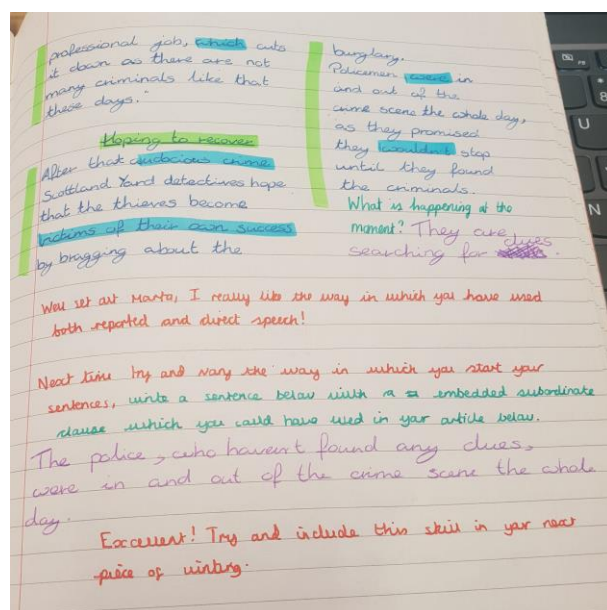 professional job, which cuts
it down as there are not
many criminals like that
these days."
Hoping to recover
After that audacious crime
Scottland Yard detectives hope
that the thieves become
victims of their own success
by bragging about the
burglary.
Policemen were in
and out of the
crime scene the whole day,
as they promised
they wouldn't stop
until they found
the criminals.
What is happening at the
moment? They are
searching for clues.
Well set out Marto, I really like the way in which you have used
both reported and direct speech!
Next time try and vary the way in which you start your
sentences, write a sentence below with a embedded subordinate
clause which you could have used in your article below.
The police, who haven't found any clues,
were in and out of the crime scene the whole
day.
Excellent! Try and include this skill in your next
piece of writing.
U
8
N